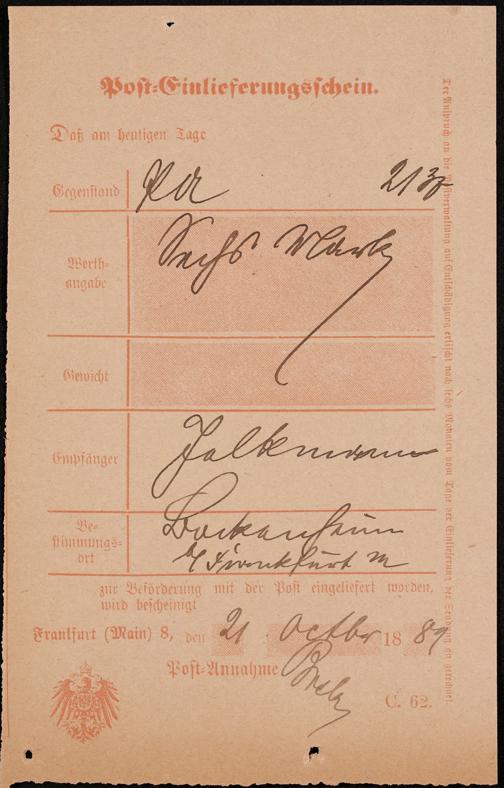 Post-Einlieferungsschein.
Daß am heutigen Tage
Gegenstand
Werth-
angabe
Sechs Mark
Gewicht
Empfänger
Falkmann
Be-
stimmungs-
ort
Bockenheim
b/ Frankfurt M
zur Beförderung mit der Post eingeliefert worden,
wird bescheinigt
Frankfurt (Main) 8, den 21 October 1889
Post-Annahme
C. 62.
Der Anspruch an die Postverwaltung auf Entschädigung erlischt nach sechs Monaten vom Tage der Einlieferung der Sendung an gerechnet.